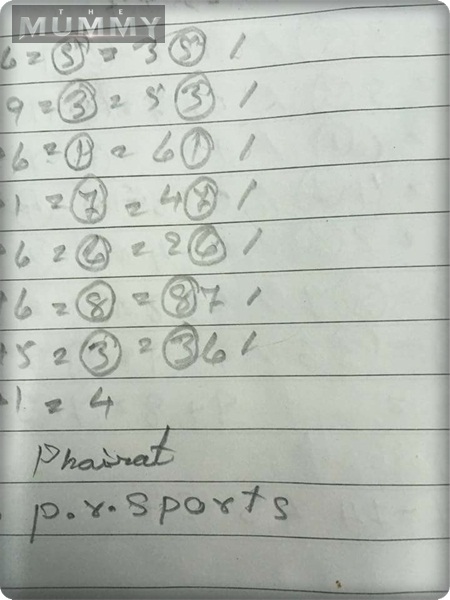 THE
MUMMY
6 = 5 = 35 /
9 = 3 = 53 /
+6 = 1 = 61 /
+1 = 7 = 47 /
+6 = 6 = 26 /
+6 = 8 = 87 /
+5 = 3 = 36 /
+1 = 4
Phairat
p.r.sports